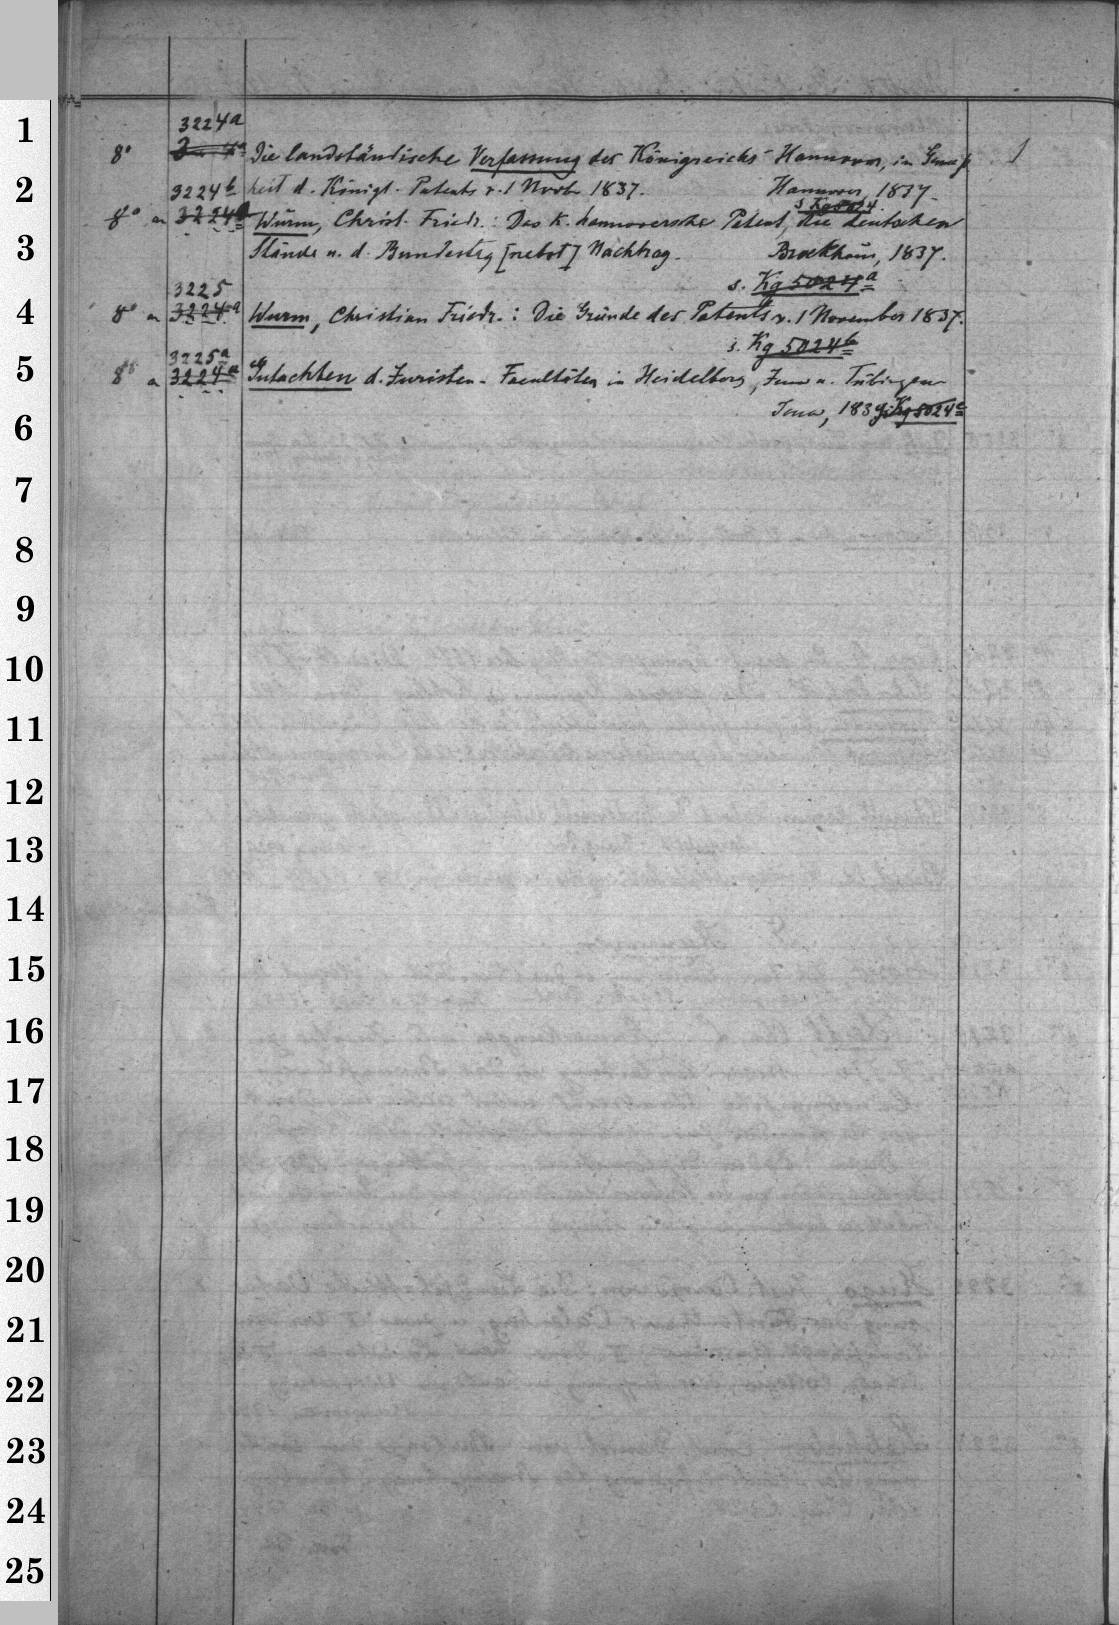 1
3224a
8° Die landständische Verfassung des Königreichs Hannover, in Gemäß- 1
2
3224b heit d. Königl. Patents v. 1 Novbr 1837. Hannover, 1837.
s. Kg 5024.
8° an 3224a Wurm, Christ. Friedr.: Das K. hannoversche Patent, die deutschen
3
Stände u. d. Bundestag [nebst] Nachtrag. Brockhaus, 1837.
3225 s. Kg 5024a
4
8° an 3224a Wurm, Christian Friedr.: Die Gründe des Patents v. 1 November 1837.
3225a s. Kg 5024b
5
8° an 3224a Gutachten d. Juristen-Facultäten in Heidelberg, Jena u. Tübingen
Jena, 1839. s. Kg 5024c
6
7
8
9
10
11
12
13
14
15
16
17
18
19
20
21
22
23
24
25